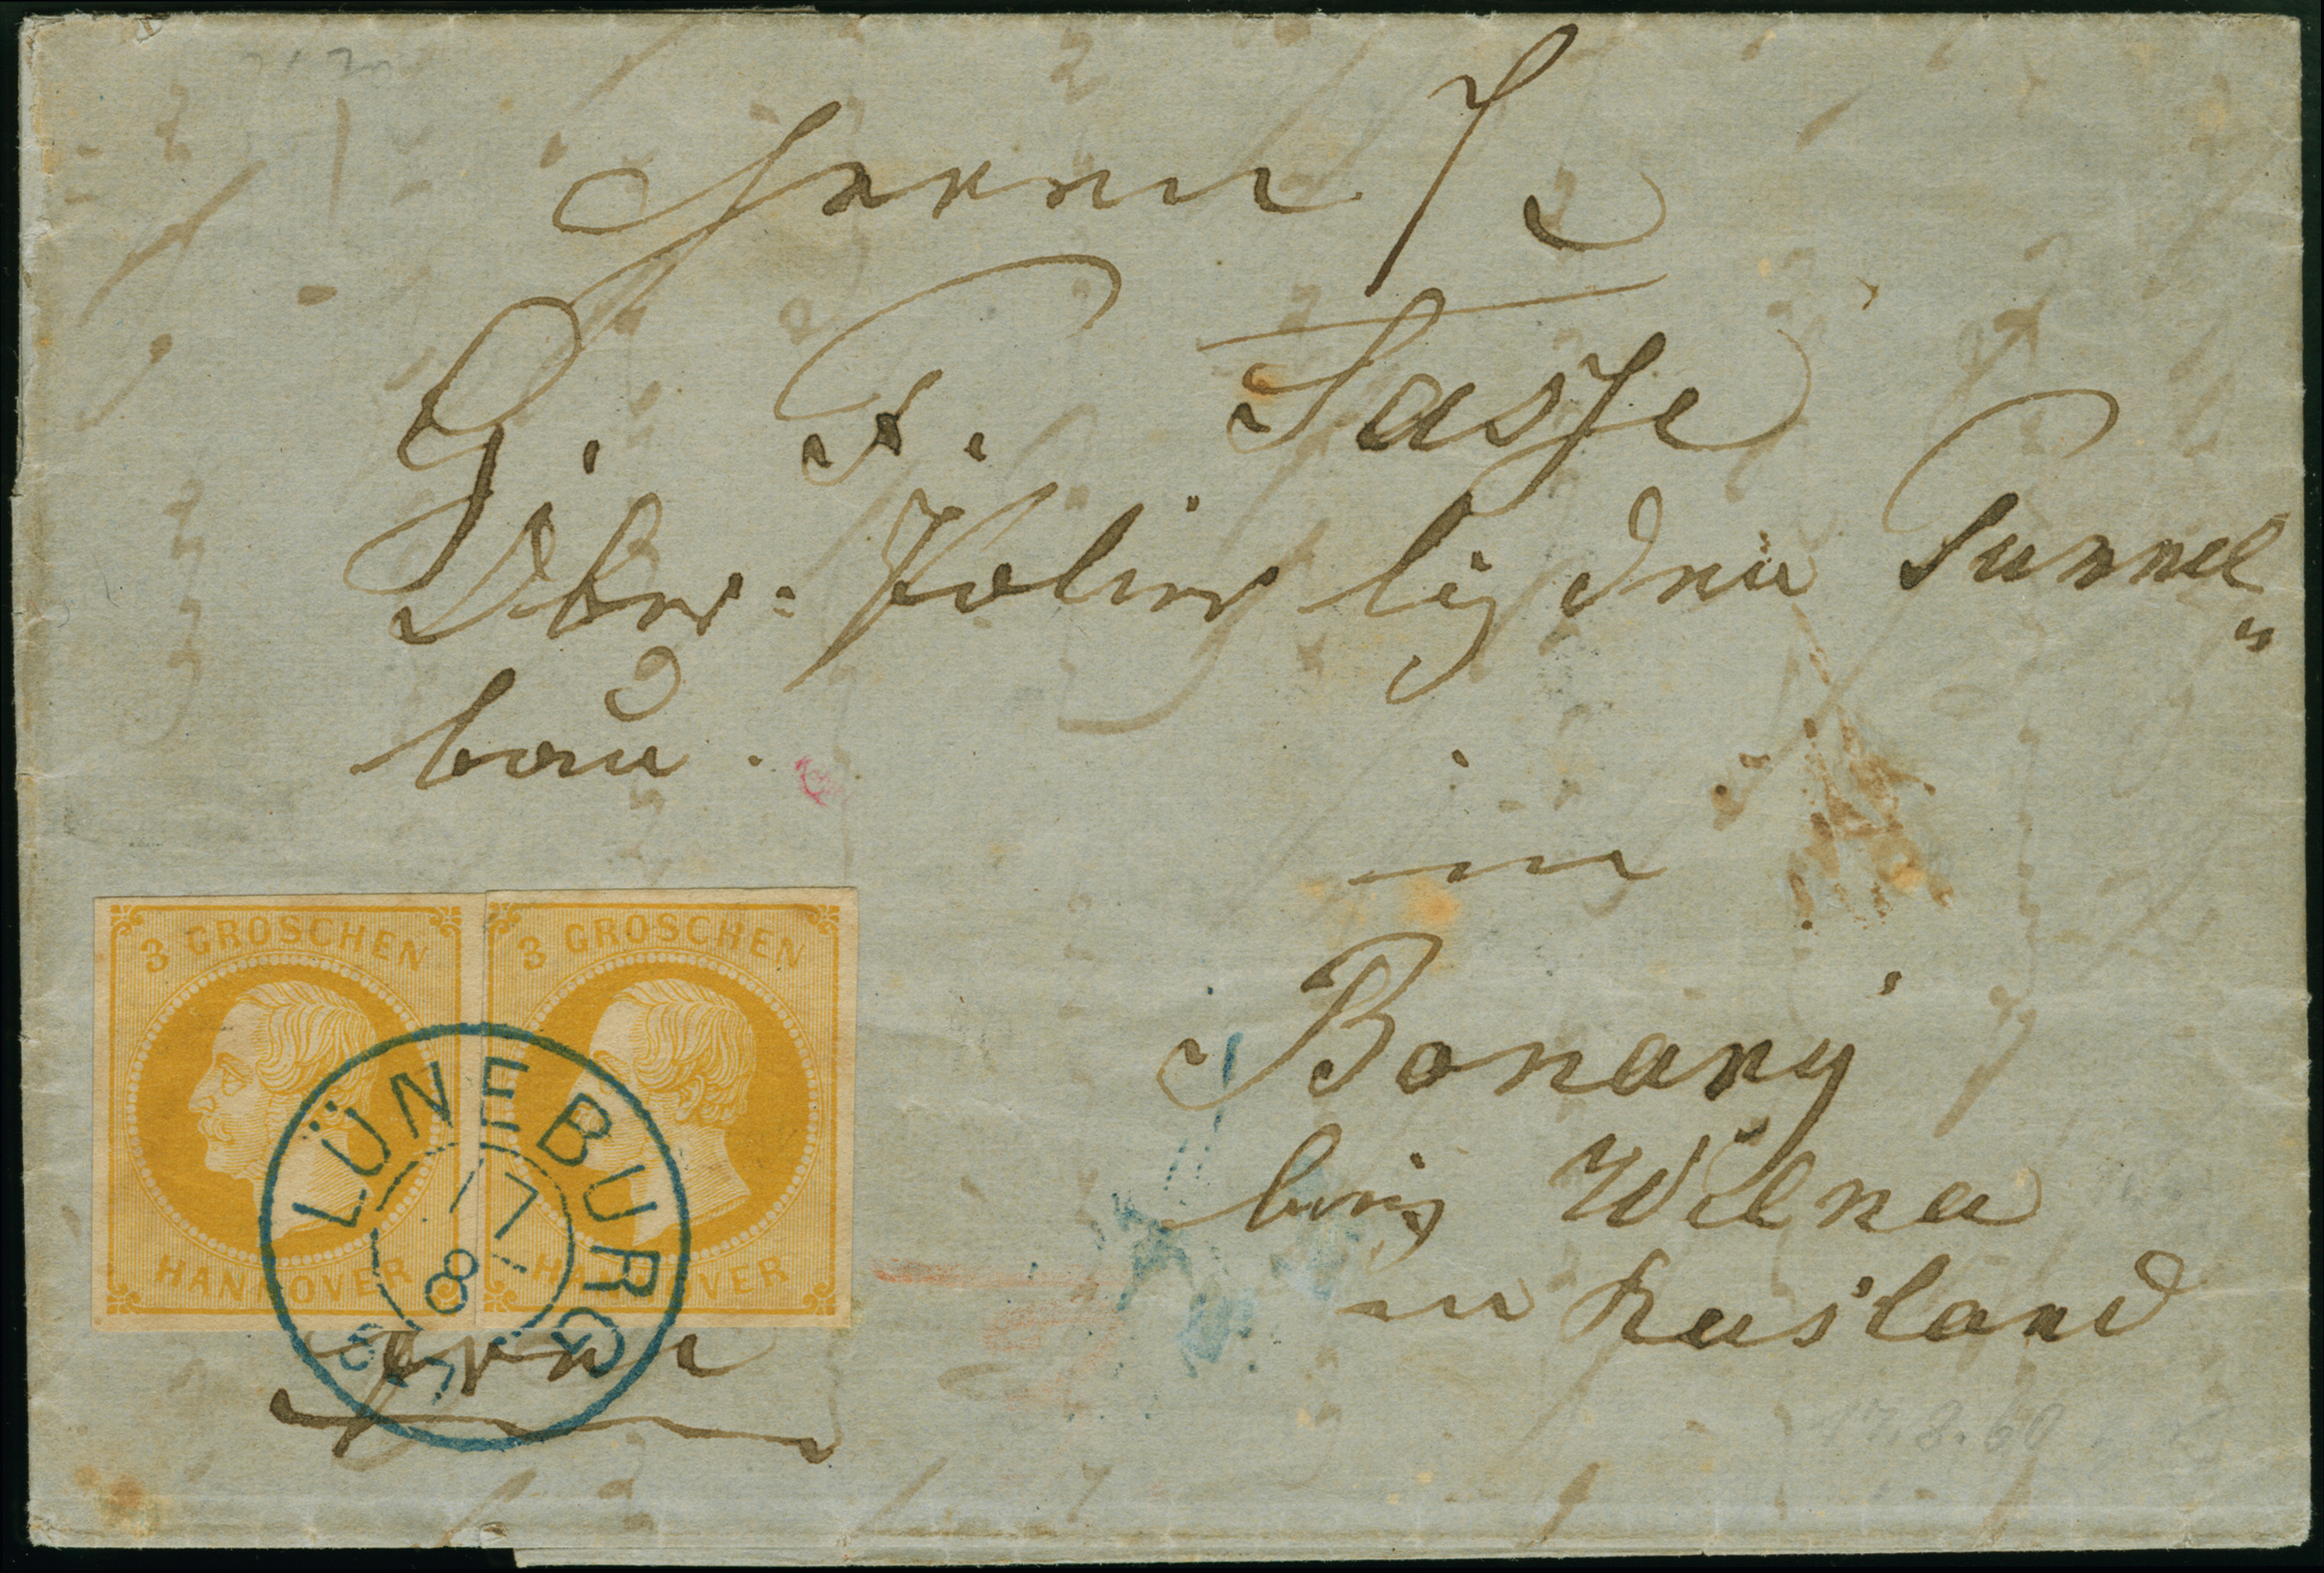 Herrn
G. F. Sasse
Ober= bey dem Tunnel„
bau.
in
Bonary
bey Wilna
in Rusland
3 GROSCHEN
HANNOVER
3 GROSCHEN
HANNOVER
LÜNEBURG
17
8
franco
17.8.60